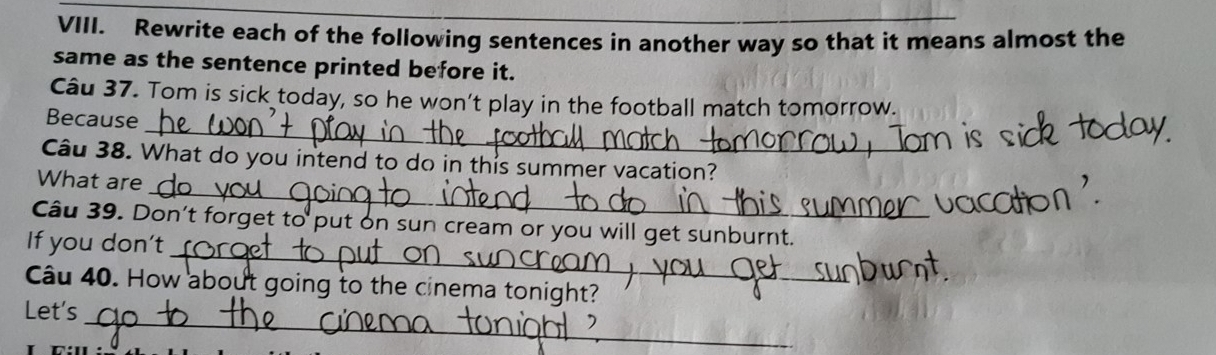 VIII. Rewrite each of the following sentences in another way so that it means almost the
same as the sentence printed before it.
Câu 37. Tom is sick today, so he won't play in the football match tomorrow.
Because he won't play in the football match tomorrow, Tom is sick today.
Câu 38. What do you intend to do in this summer vacation?
What are do you going to intend to do in this summer vacation?
Câu 39. Don't forget to put on sun cream or you will get sunburnt.
If you don't forget to put on suncream, you get sunburnt.
Câu 40. How about going to the cinema tonight?
Let's go to the cinema tonight?